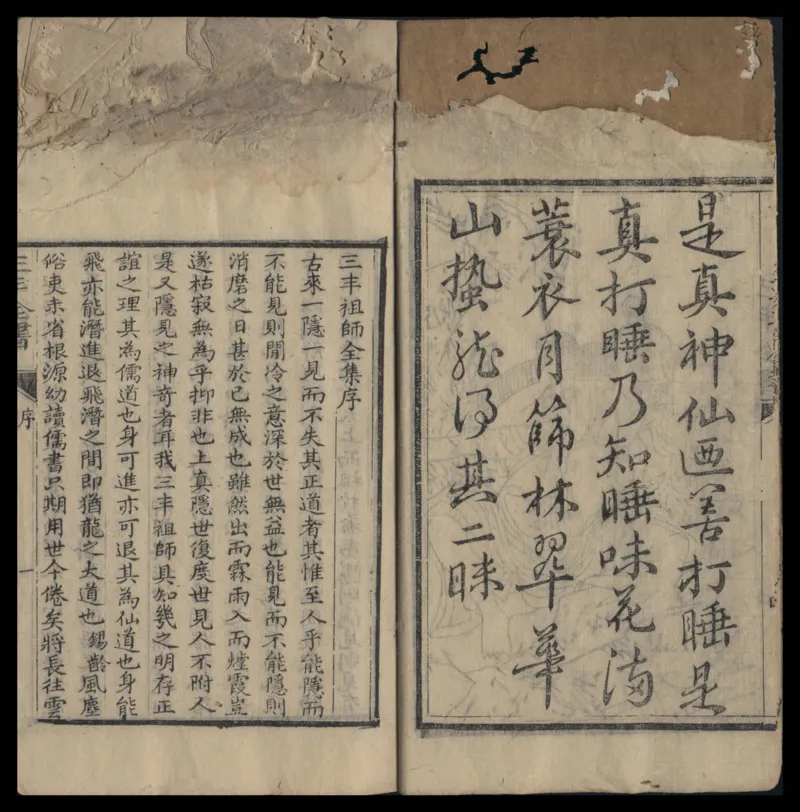 是真神仙迺善打睡是
真打睡乃知睡味花滿
蓑衣月篩林翠華
山蟄龍得其二昧
三丰祖師全集序
古來一隱一見而不失其正道者其惟至人乎能隱而
不能見則閒冷之意深於世無益也能見而不能隱則
消磨之日甚於已無成也雖然出而霖雨入而煙霞豈
遂枯寂無為乎抑非也上真隱世復度世見人不附人
是又隱見之神奇者耳我三丰祖師具知幾之明存正
誼之理其為儒道也身可進亦可退其為仙道也身能
飛亦能潛進退飛潛之間即猶龍之大道也錫齡風塵
俗吏未省根源幼讀儒書只期用世今倦矣將長往雲
三丰全書
序
一